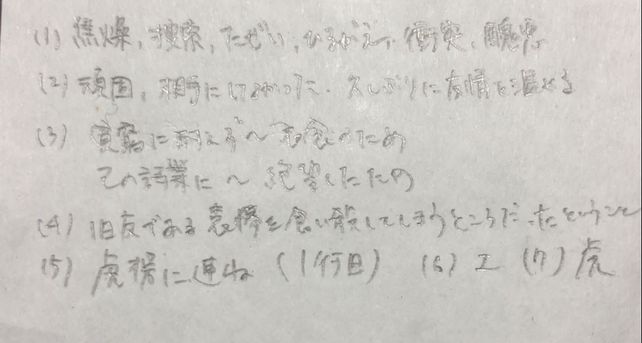 (1) 焦燥, 捜索, たぜい, ひるがえって, 衝突, 醜悪
(2) 頑固, 相手にしなかった. 久しぶりに友情を温める
(3) 貧窮に耐えず〜衣食のため
その詩業に〜絶望したため
(4) 旧友である袁傪を食い殺してしまうところだったということ
(5) 虎榜に連ね (1行目) (6) エ (7) 虎